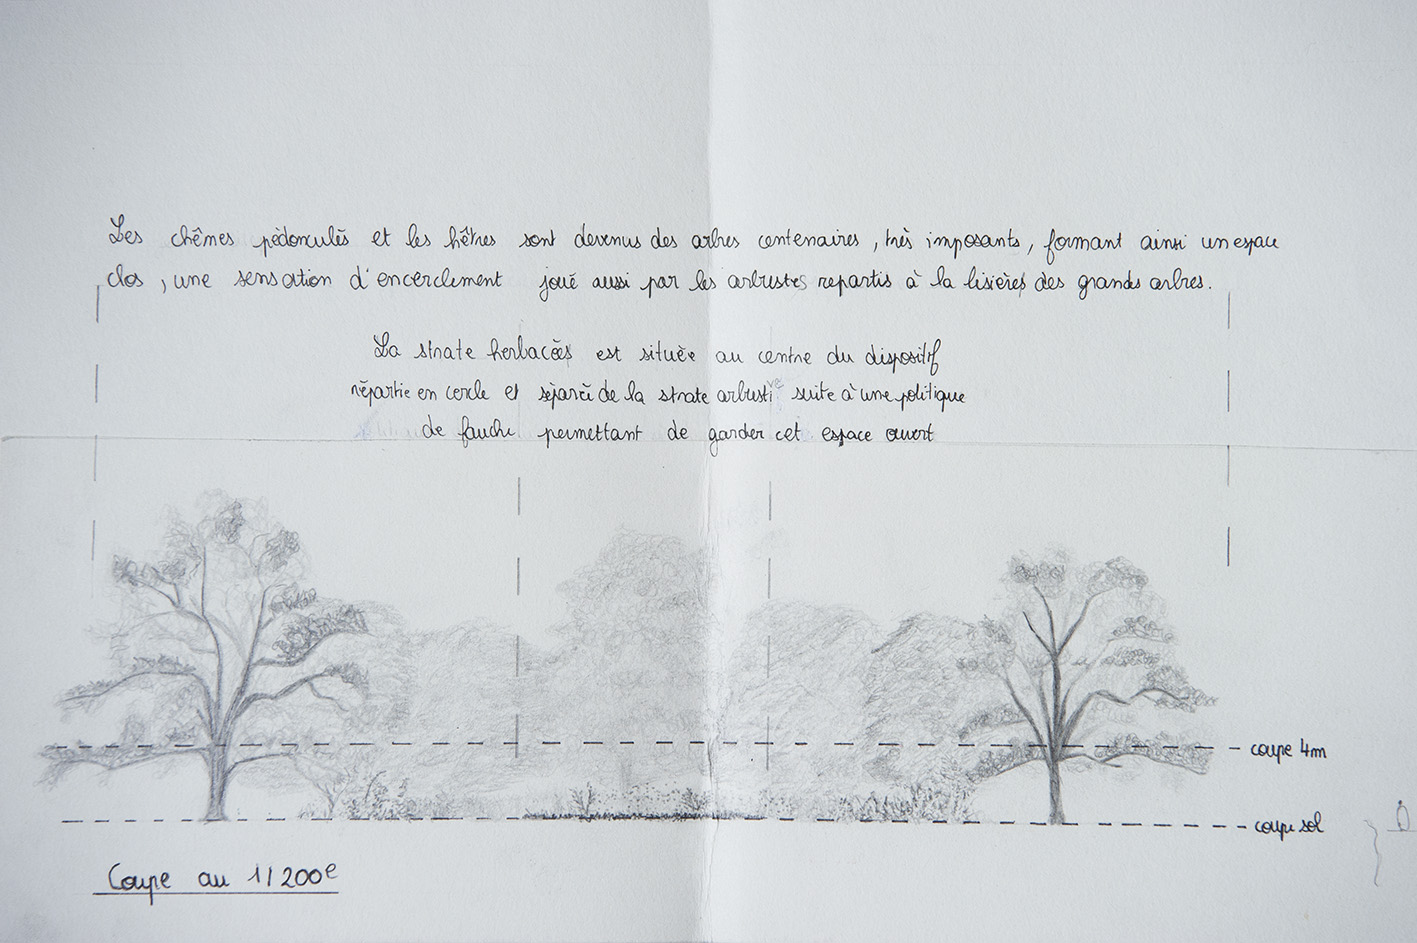 Les chênes pédonculés et les hêtres sont devenus des arbres centenaires, très imposants, formant ainsi un espace
clos, une sensation d'encerclement joué aussi par les arbustes repartis à la lisière des grands arbres.
La strate herbacées est située au centre du dispositif
répartie en cercle et séparé de la strate arbustive suite à une politique
de fauche permettant de garder cet espace ouvert
coupe 4m
coupe sol
Coupe au 1/200e